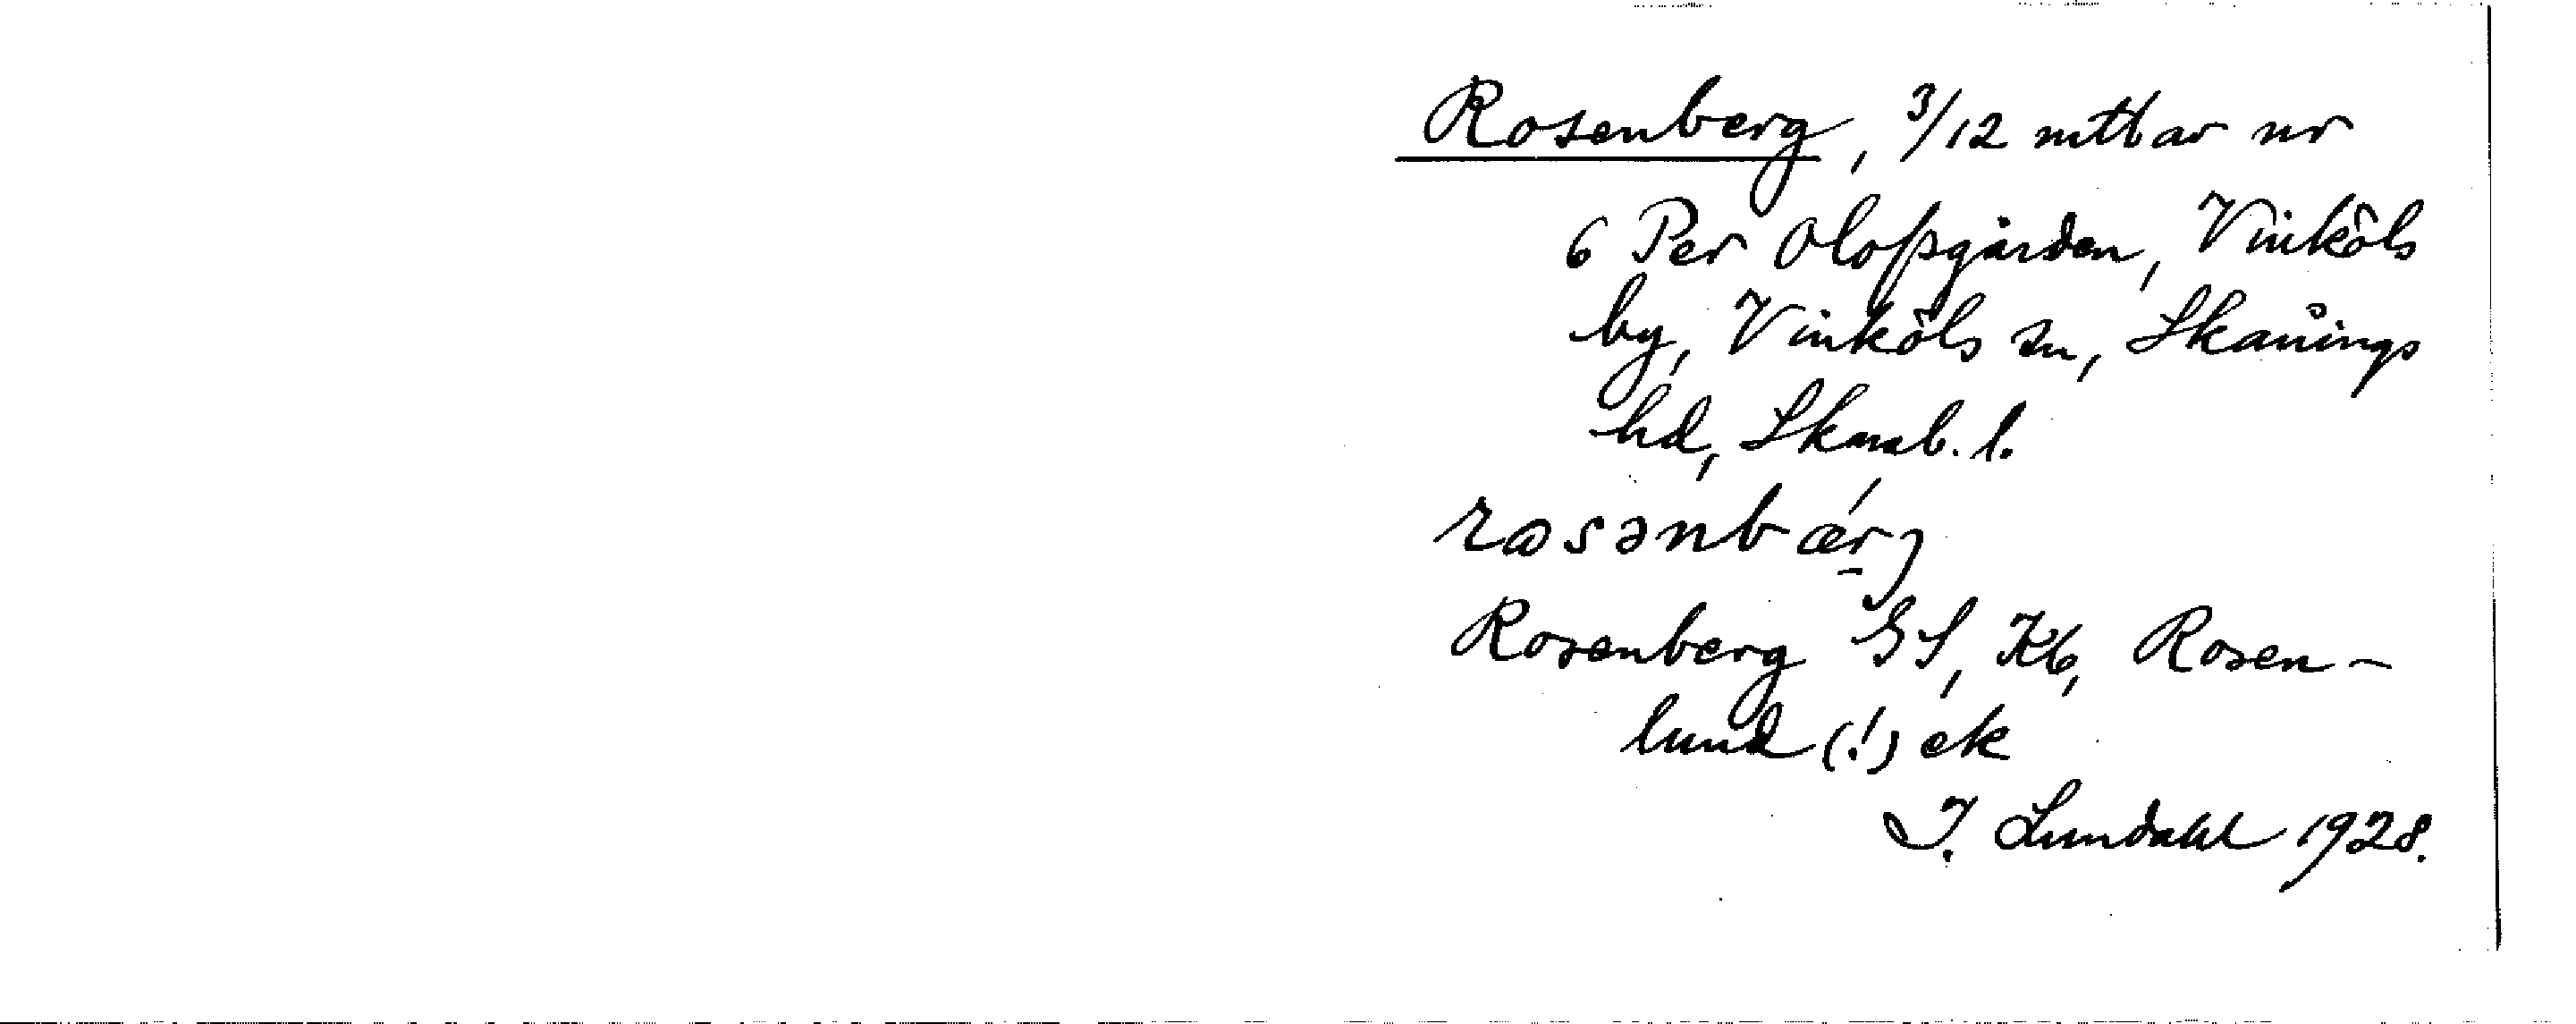 Rosenberg, 3/12 mtl av nr
6 Per Olofsgården, Vinköls
by, Vinköls sn, Skånings
hd, Skarab. l.
rosənbær̠j
Rosenberg GS, Kb, Rosen-
lund (!) ek
I. Lundahl 1928.